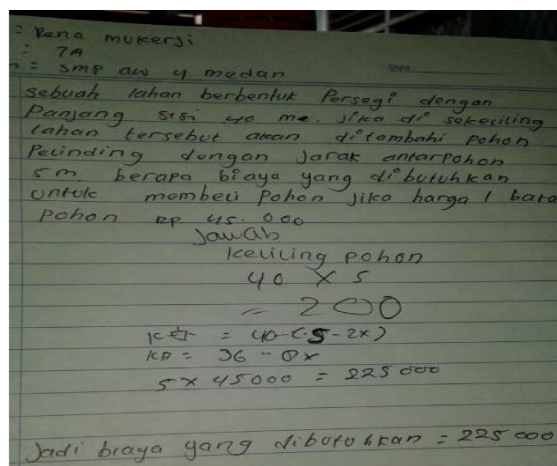 = Rena mukersi
: 7A
= smp aw 4 medan
sebuah lahan berbentuk Persegi dengan
Panjang sisi 40 me. Jika di sekeliling
lahan tersebut akan ditambahi pohon
Pelinding dengan Jarak antarpohon
5 m. berapa biaya yang dibutuhkan
untuk membeli Pohon Jika harga 1 bata
pohon RP 45.000
Jawab
keliling pohon
40 X 5
= 200
= 40-(-5-2x)
= 36 - 8x
5 x 45000 = 225 000
Jadi biaya yang dibutuhkan = 225 000